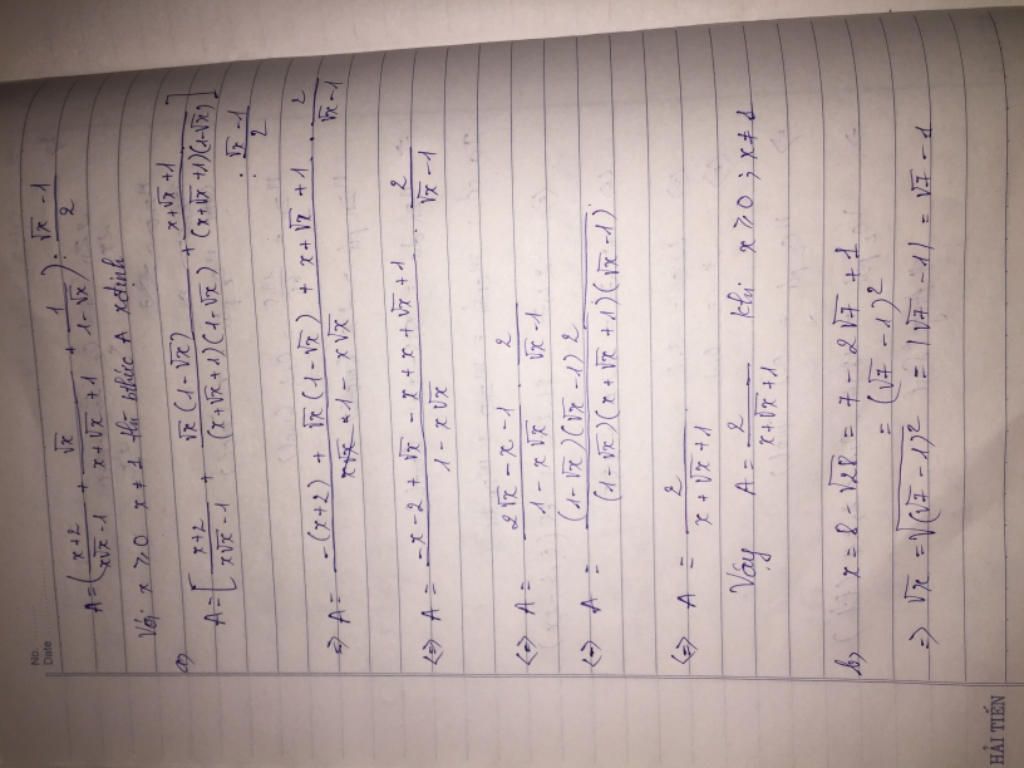 No.
Date
A = ( (x+2)/(x√x - 1) + √x/(x+√x+1) + 1/(1-√x) ) : (√x - 1)/2
Với x ⩾ 0 x ≠ 1 thì biểu thức A xđịnh
a)
A = [ (x+2)/(x√x - 1) + √x(1-√x)/((x+√x+1)(1-√x)) + (x+√x+1)/((x+√x+1)(1-√x)) ] : (√x - 1)/2
=> A = (-(x+2) + √x(1-√x) + x+√x+1)/(1 - x√x) . 2/(√x - 1)
(=) A = (-x - 2 + √x - x + x + √x + 1)/(1 - x√x) . 2/(√x - 1)
(=) A = (2√x - x - 1)/(1 - x√x) . 2/(√x - 1)
(=) A = ((1-√x)(√x-1) 2)/((1-√x)(x+√x+1)(√x-1))
(=) A = 2/(x+√x+1)
Vậy A = 2/(x+√x+1) khi x ⩾ 0 ; x ≠ 1
b) x = 8 - √28 = 7 - 2√7 + 1
= (√7 - 1)²
=> √x = √((√7 - 1)²) = |√7 - 1| = √7 - 1
HẢI TIẾN